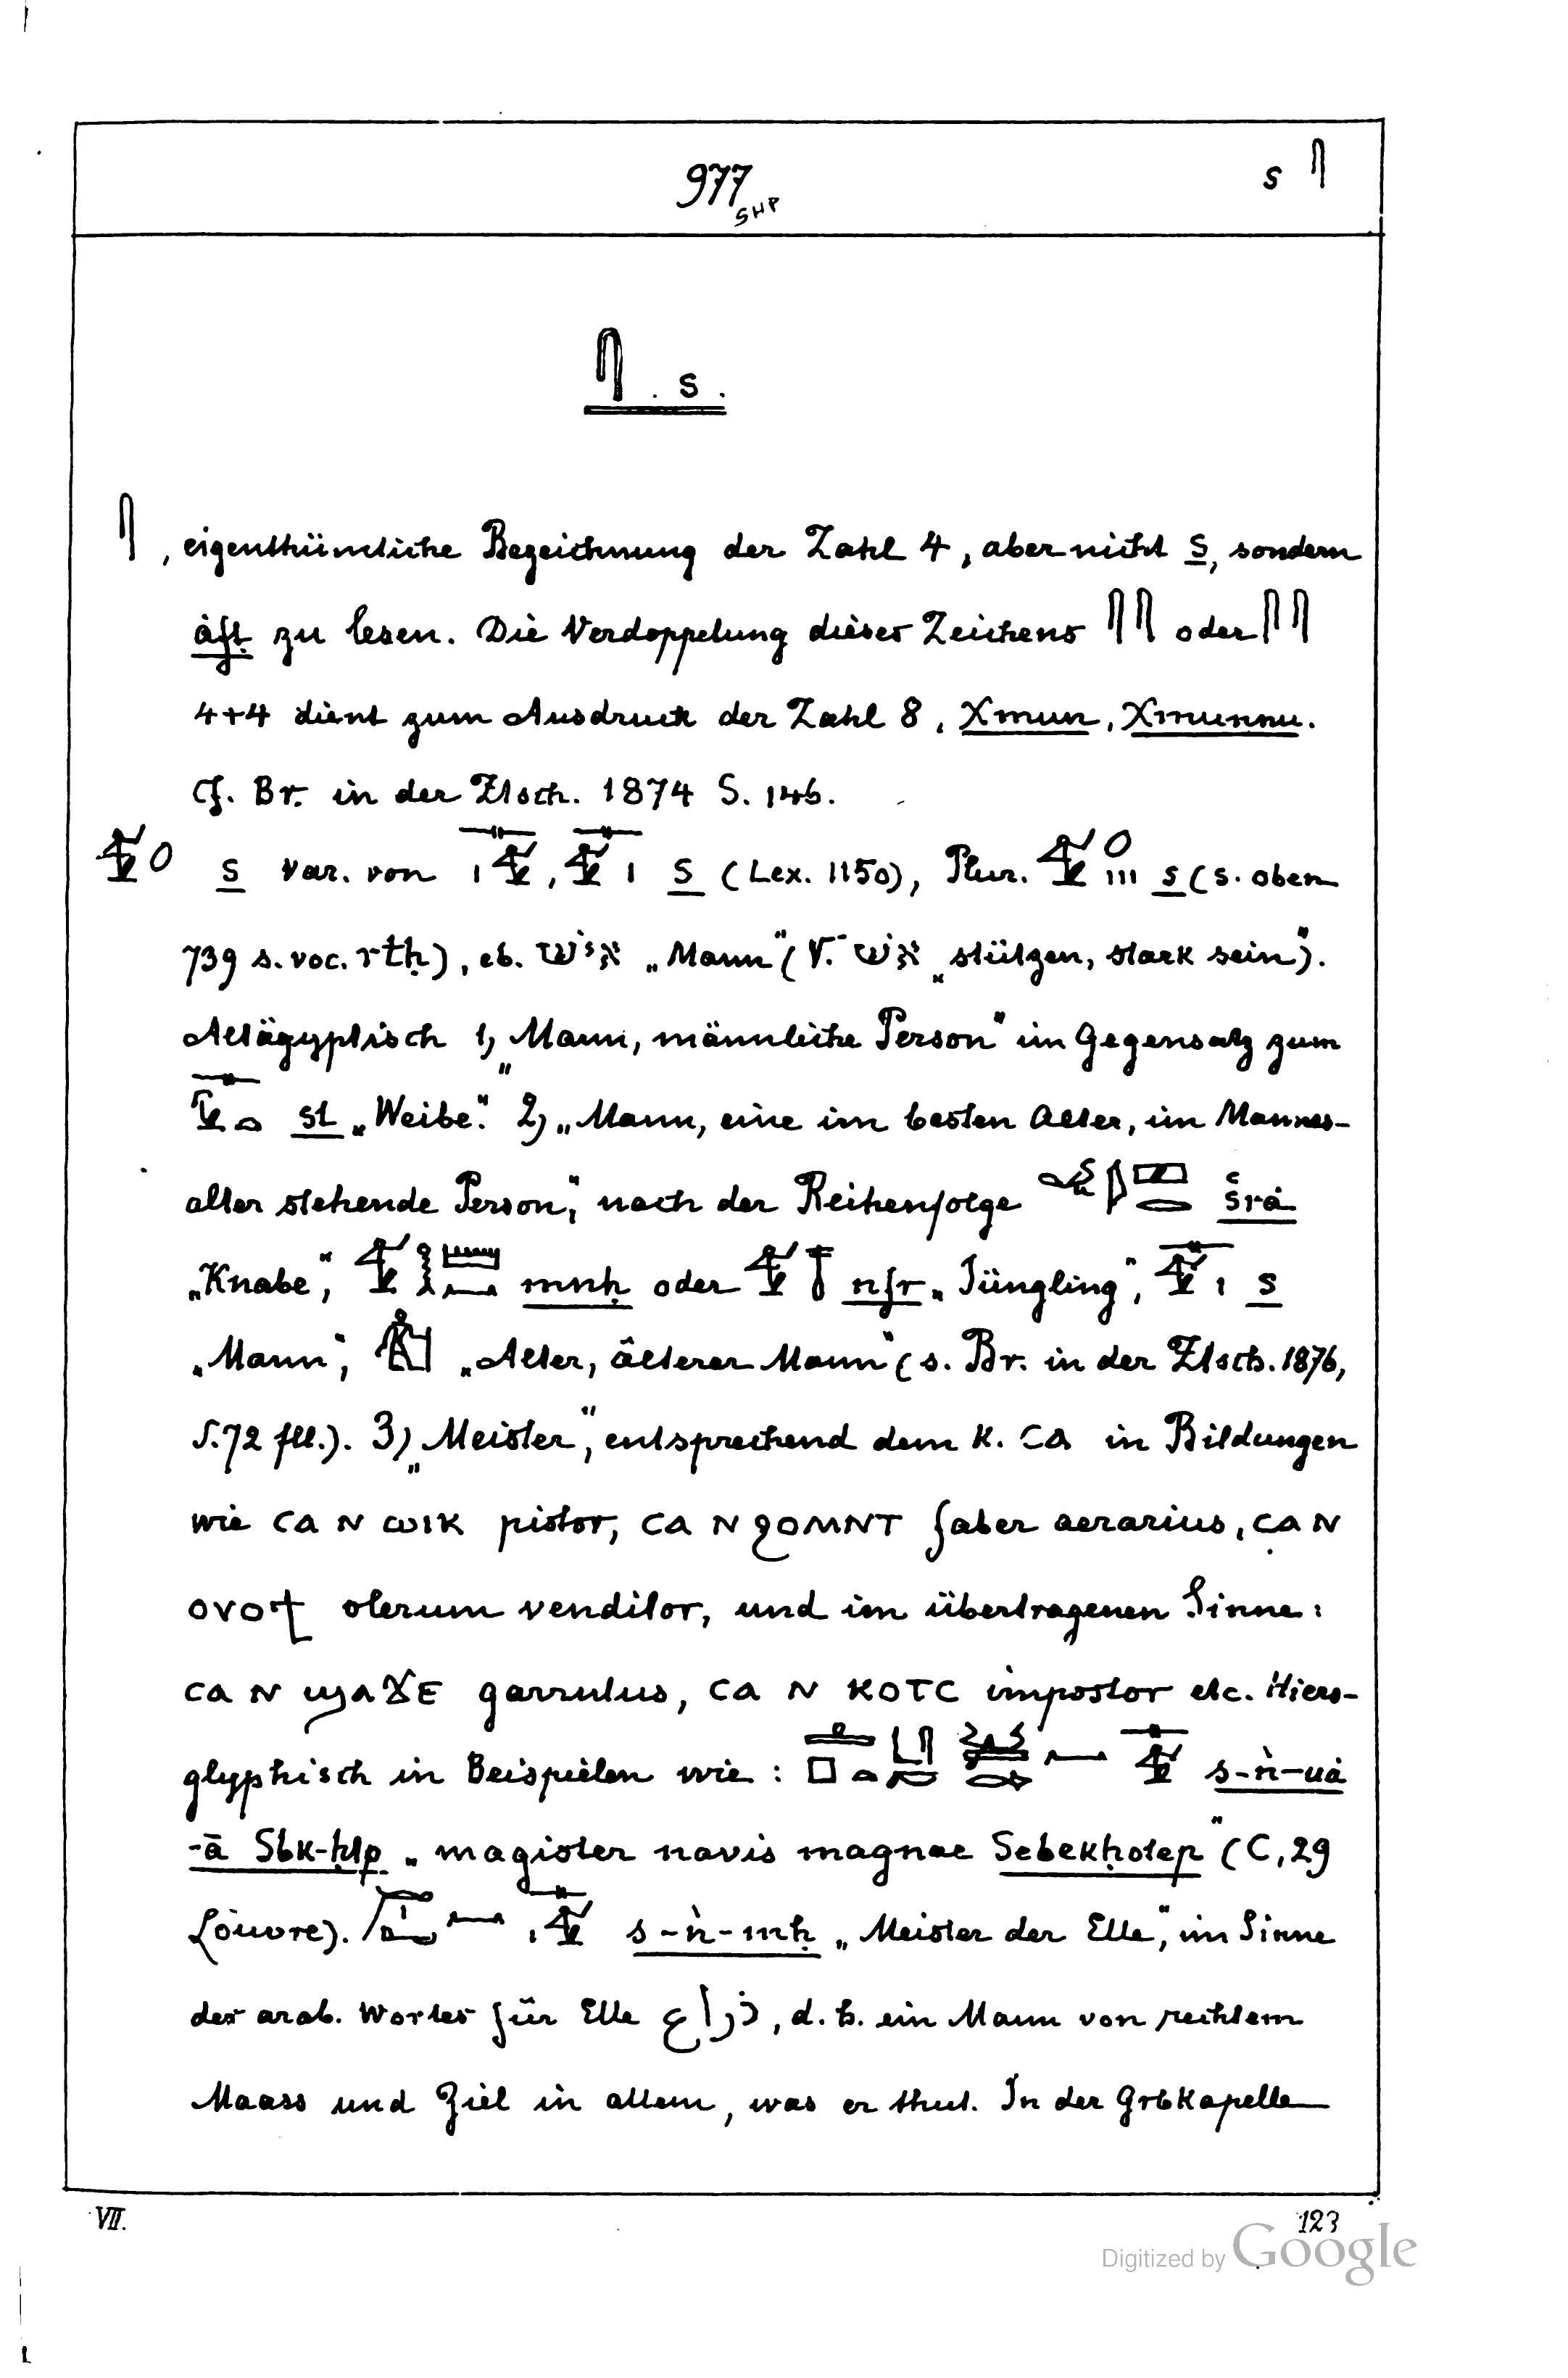 977 s 𓋴
SHP
𓋴 . s .
𓋴, eigenthümliche Bezeichnung der Zahl 4, aber nicht s, sondern
ȧfṭ zu lesen. Die Verdoppelung dieses Zeichens 𓋴𓋴 oder 𓋴𓋴
4+4 dient zum Ausdruck der Zahl 8, Xmun, Xmunnu.
Cf. Br. in der Ztsch. 1874 S. 146.
s Var. von s (Lex. 1150), Plur. s (s. oben
739 s. voc. rtḥ), eb. אִישׁ „Mann“ (V. אשׁ „stützen, stark sein“).
Altägyptisch 1) „Mann, männliche Person“ im Gegensatz zum
st „Weibe“. 2) „Mann, eine im besten Alter, im Mannes-
alter stehende Person“, nach der Reihenfolge šrȧ
„Knabe“, mnḥ oder nfr „Jüngling“, s
„Mann“, „Alter, älterer Mann“ (s. Br. in der Ztsch. 1876,
S. 72 fll.). 3) „Meister“, entsprechend dem K. ⲥⲁ in Bildungen
wie ⲥⲁ ⲛ ⲱⲓⲕ pistor, ⲥⲁ ⲛ ϩⲟⲙⲛⲧ faber aerarius, ⲥⲁ ⲛ
ⲟⲩⲟϯ olerum venditor, und im übertragenen Sinne:
ⲥⲁ ⲛ ϣⲁϫⲉ garrulus, ⲥⲁ ⲛ ⲕⲟⲧⲥ impostor etc. Hiero-
glyphisch in Beispielen wie: s-ǹ-uȧ
-ā Sbk-ḥtp „magister navis magnae Sebekḥotep“ (C, 29
Louvre). s-ǹ-mḥ „Meister der Elle“, im Sinne
des arab. Wortes für Elle ذراع, d. h. ein Mann von rechtem
Maass und Ziel in allem, was er thut. In der Grbkapelle
VII. 123
Digitized by Google